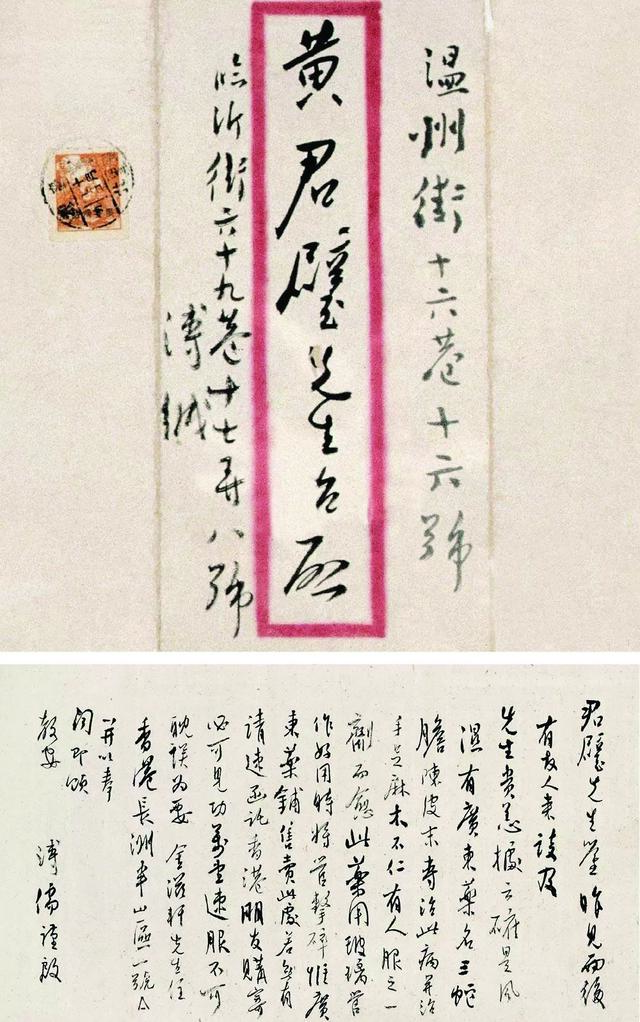 温州街十六巷十六號
黄君璧先生台啟
臨沂街六十九巷十七弄八號
溥緘
君璧先生鑒昨見面後
有友人來談及
先生貴恙據云確是風
濕有廣東藥名三蛇
膽陳皮末專治此病并治
手足麻木不仁有人服之一
劑而愈此藥用玻璃管
作好用時將管擊碎惟廣
東藥鋪售賣此處若無有
請速函託香港朋友購寄
必可見功萬望速服不可
耽誤為要 金滋軒先生住
香港長洲半山區一號A
并以奉
聞即頌
教安
溥儒謹啟